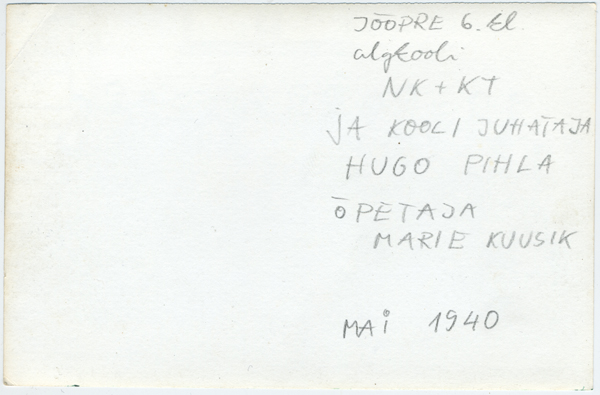 JÕÕPRE 6. kl.
algkooli
NK + KT
JA KOOLI JUHATAJA
HUGO PIHLA
ÕPETAJA
MARIE KUUSIK
MAI 1940